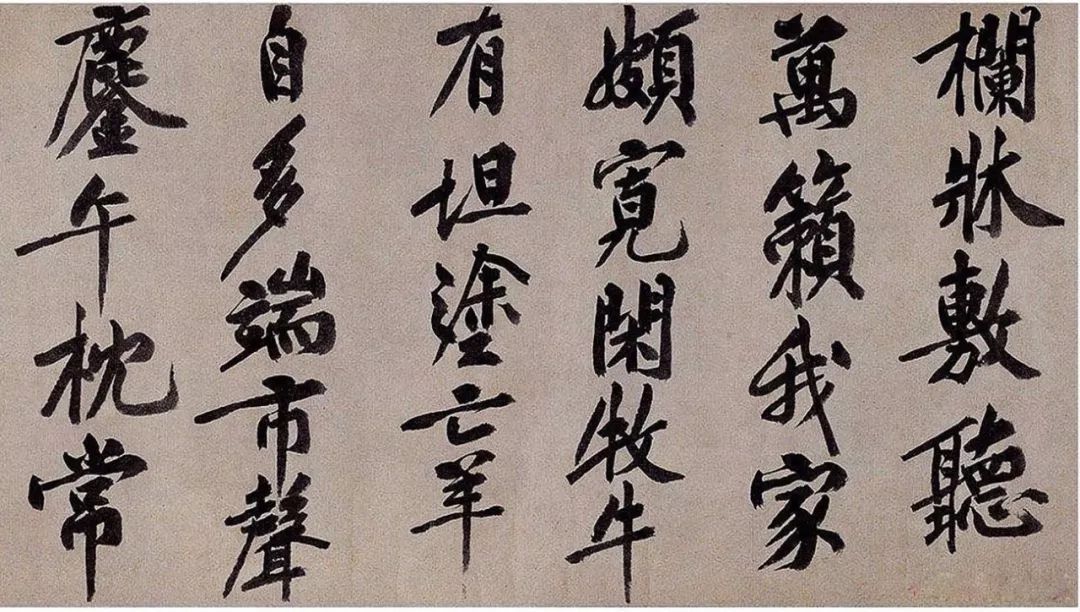 欄牀敷聽
萬籟我家
頗寬閑牧牛
有坦塗亡羊
自多端市聲
鏖午枕常